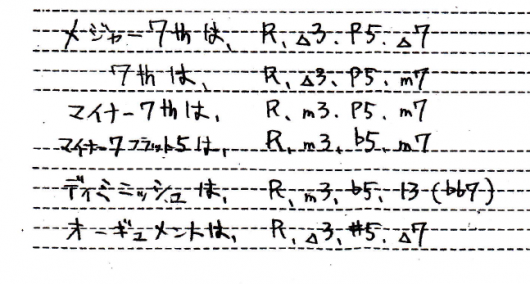 メージャー7thは、R、△3、P5、△7
7thは、R、△3、P5、m7
マイナー7thは、R、m3、P5、m7
マイナー7フラット5は、R、m3、b5、m7
ディミニッシュは、R、m3、b5、13(bb7)
オーギュメントは、R、△3、#5、△7